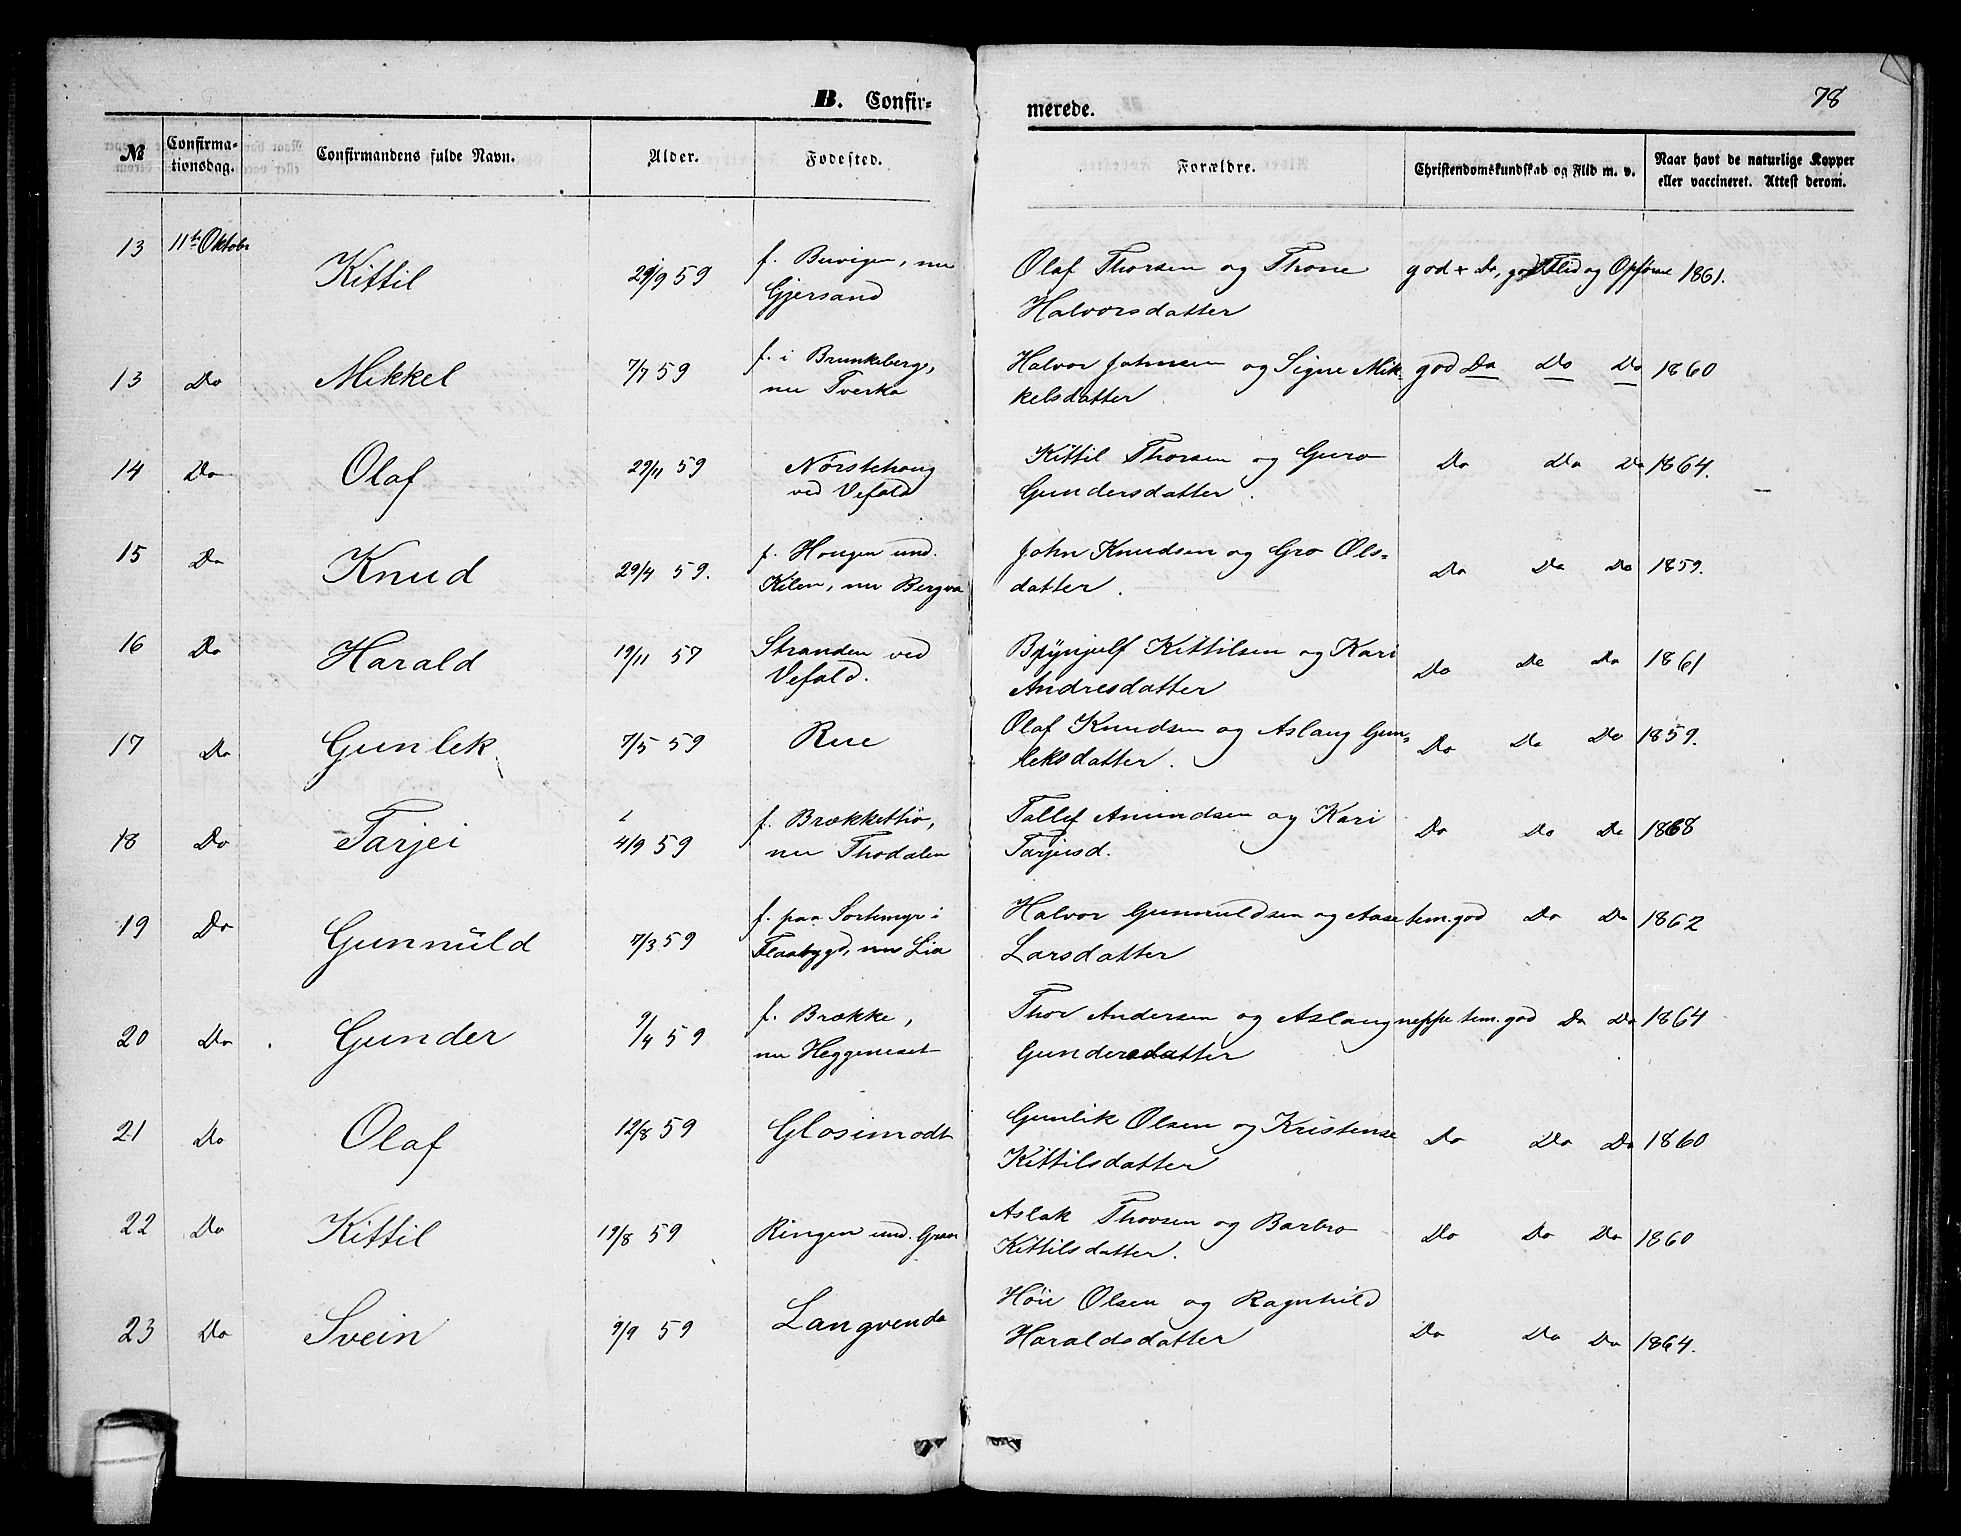 B. Confir-
merede.
78
№
Confirma-
tionsdag.
Confirmandens fulde Navn.
Alder.
Fødested.
Forældre.
Christendomskundskab og Flid m. v.
Naar havt de naturlige Kopper
eller vaccineret. Attest derom.
13 11te Oktobr Kittil 29/9 59 f. Buvigen, nu Olaf Thorsen og Thone god + Do, god Flid og Opførse 1861.
Gjersand Halvorsdatter
13 Do Mikkel 7/7 59 f. i Brunkeberg, Halvor Johnsen og Signe Mik god Do Do Do 1860
nu Tverka kelsdatter
14 Do Olaf 29/11 59 Norstehoug Kittil Thorsen og Guro Do Do Do 1864.
ved Vefald Gundersdatter.
15 Do Knud 29/4 59. f. Hougen und. John Knudsen og Gro Ols- Do Do Do 1859.
Kilen, nu Bergva datter.
16 Do Harald 19/11 57 Stranden ved Brynjulf Kittilsen og Kari Do Do Do 1861
Vefald. Andresdatter
17 Do Gunlek 7/5 59 Rue Olaf Knudsen og Aslaug Gun- Do Do Do 1859.
leksdatter.
18 Do Tarjei 4/9 59 f. Brækkethø, Tallef Amundsen og Kari Do Do Do 1868
nu Thodalen Tarjeisd.
19 Do Gunnuld 7/3 59 f. paa Sortemyr i Halvor Gunnuldsen og Aase tem. god Do Do 1862
Flaabygd, nu Lia Larsdatter
20 Do Gunder 9/4 59 f. Brække, Thor Andersen og Aslaug neppe tem. god Do Do 1864
nu Heggeneset Gundersdatter
21 Do Olaf 12/8 59 Glosimodt Gunlik Olsen og Kristense Do Do Do 1860
Kittilsdatter
22 Do Kittil 19/8 59 Ringen und. Grav Aslak Thovsen og Barbro Do Do Do 1860
Kittilsdatter.
23 Do Svein 9/9 59 Langvenda Høie Olsen og Ragnhild Do Do Do 1864.
Haraldsdatter